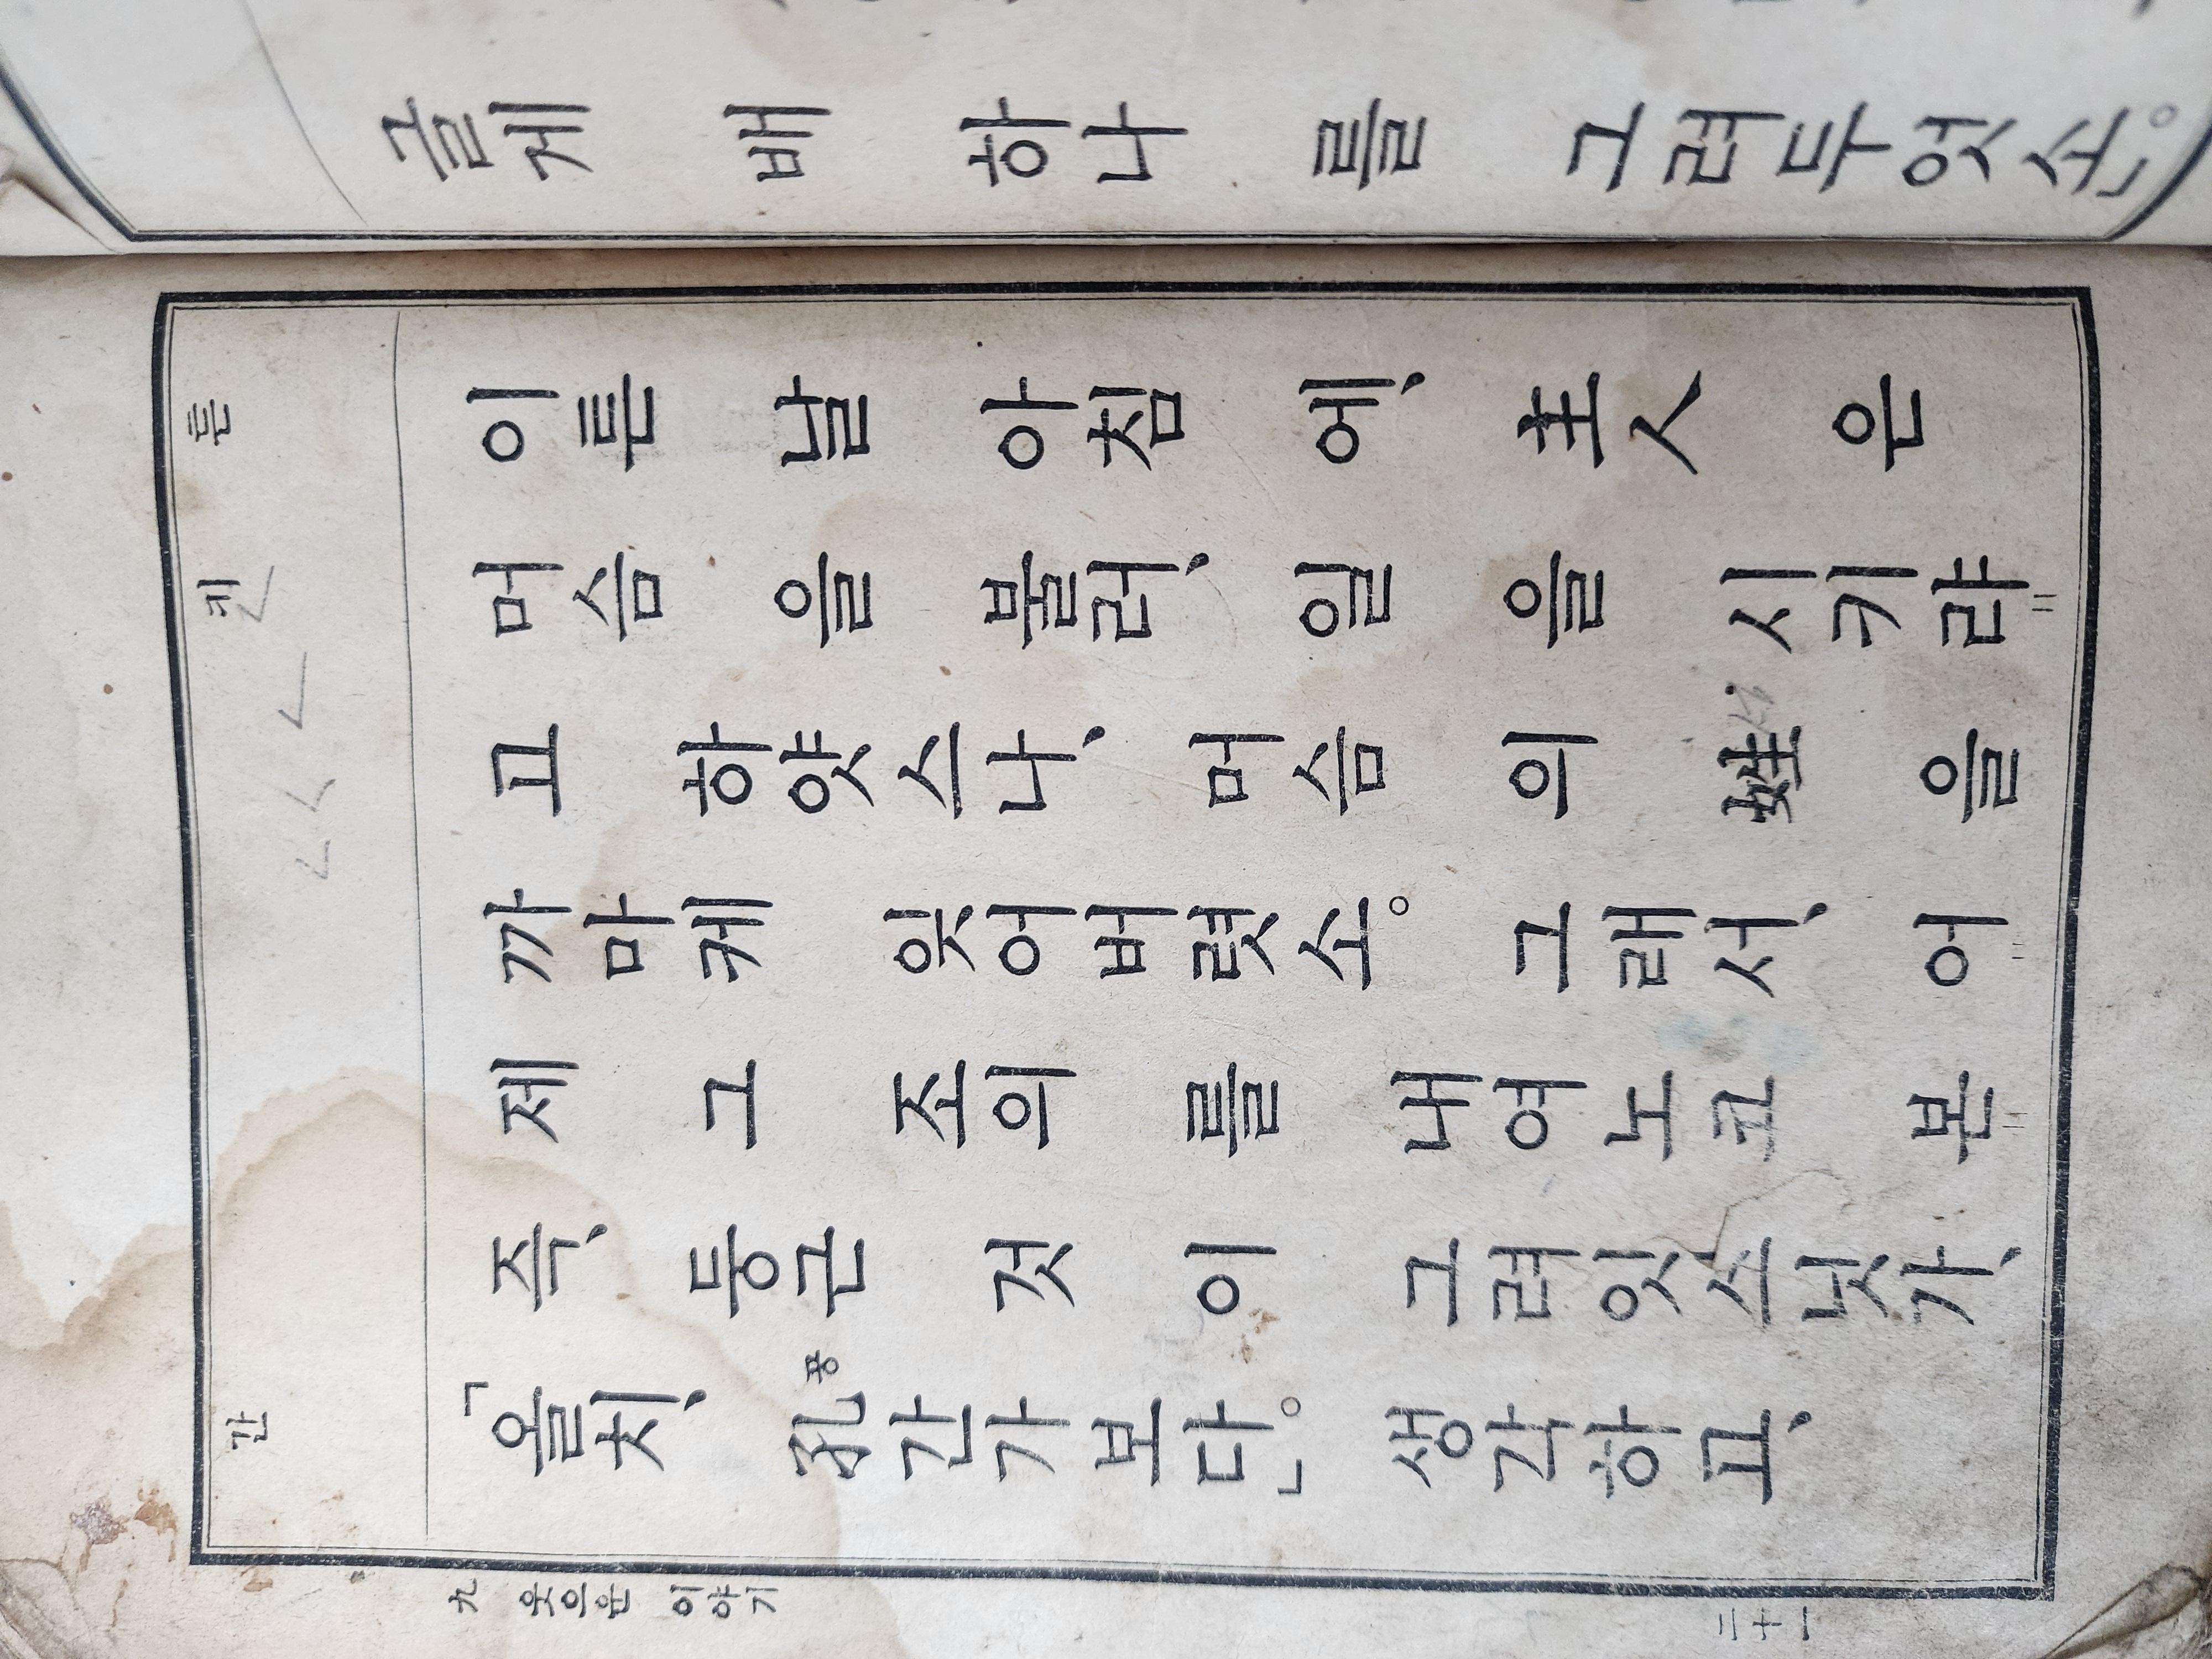 글게 배 하나 를 그려두엇소」。
튼
키
간
이튼 날 아침 에、 主人 은
머슴 을 불러、 일 을 시기랴
고 하얏스나、 머슴 의 姓 을
까마케 잇어버렷소。 그래서、 어
제 그 조의 를 내여노코 본
즉、 둥근 것 이 그려잇스닛가、
「올치、 孔간가 보다」。 생각하고、
공
九 웃으운 이야기
三十一